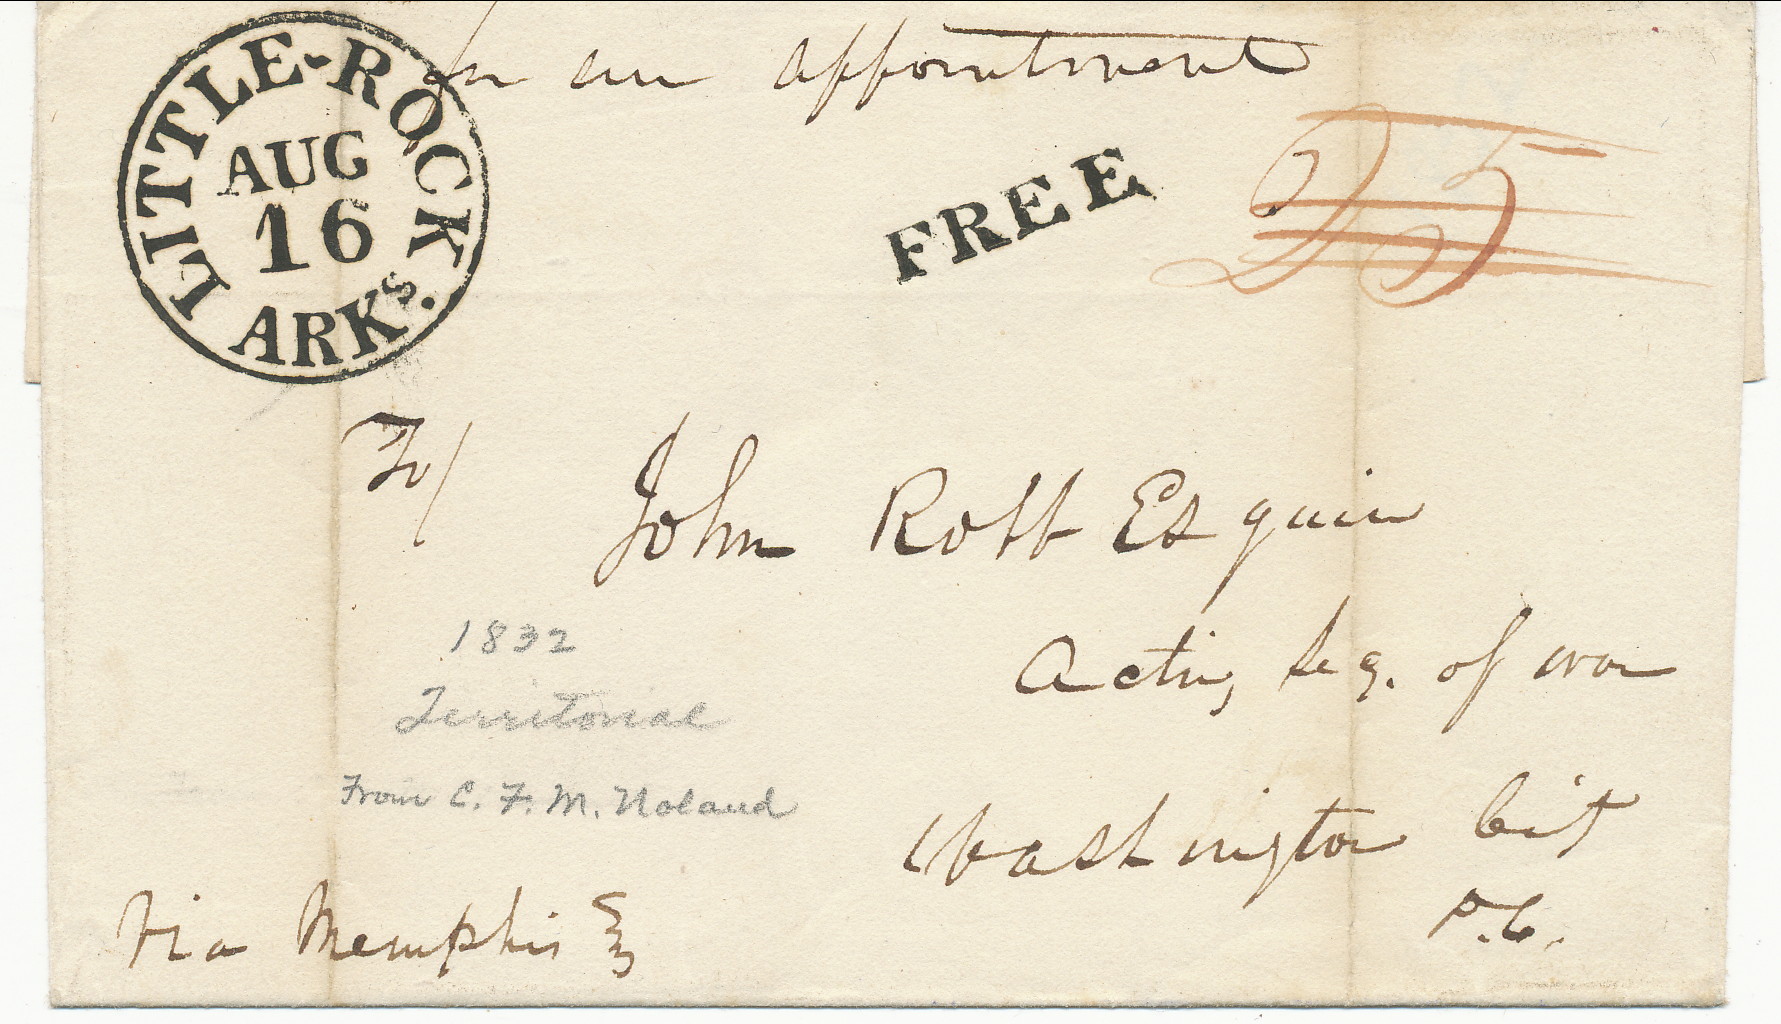 for an appointment
LITTLE-ROCK
AUG
16
ARKS.
FREE
25
To/
John Robb Esquire
Acting Secy. of war
Washington City
D.C.
1832
Territorial
From C. F. M. Noland
Via Memphis